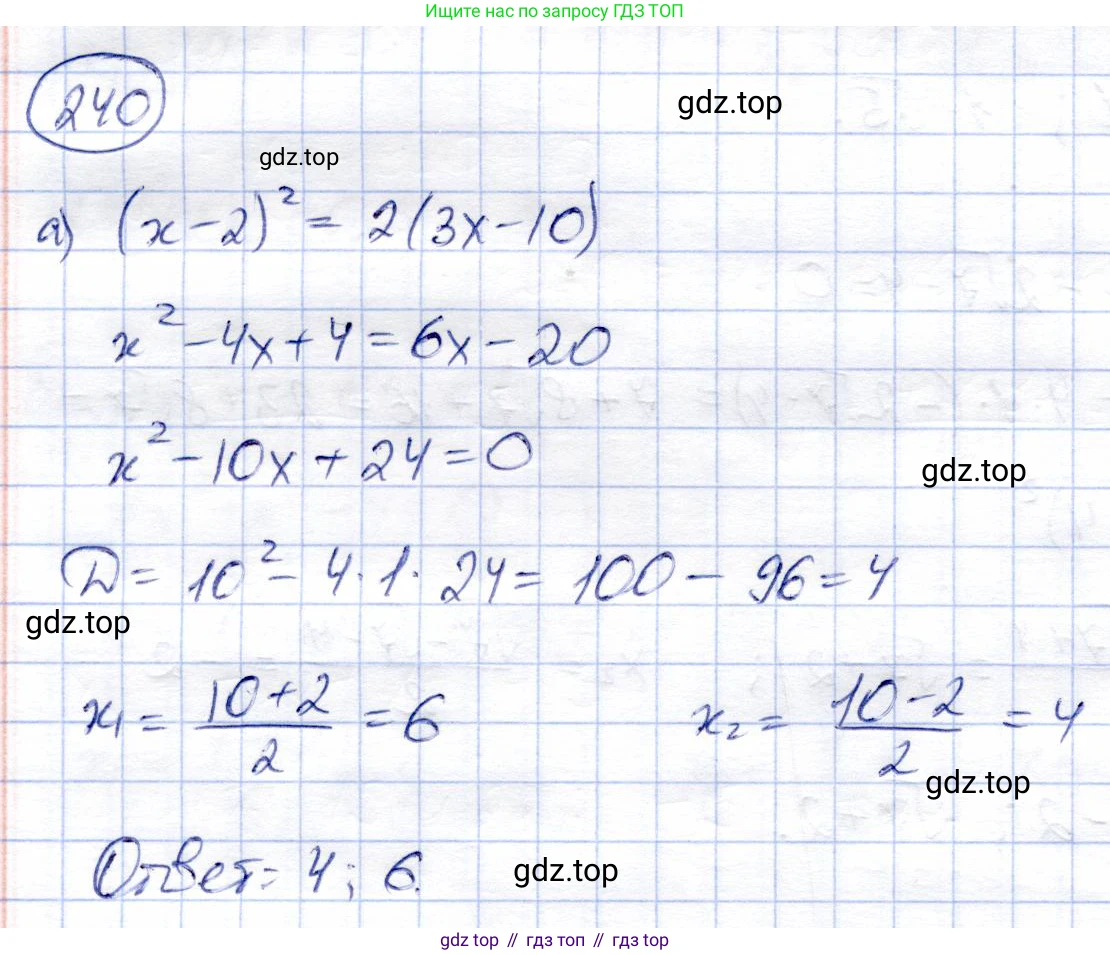 Ищите нас по запросу ГДЗ ТОП
240
gdz.top
gdz.top
а) (x-2)² = 2(3x-10)
x² - 4x + 4 = 6x - 20
x² - 10x + 24 = 0
gdz.top
D = 10² - 4·1·24 = 100 - 96 = 4
gdz.top
x₁ = (10+2)/2 = 6 x₂ = (10-2)/2 = 4
gdz.top
Ответ: 4; 6.
gdz.top
gdz top // гдз топ // гдз top